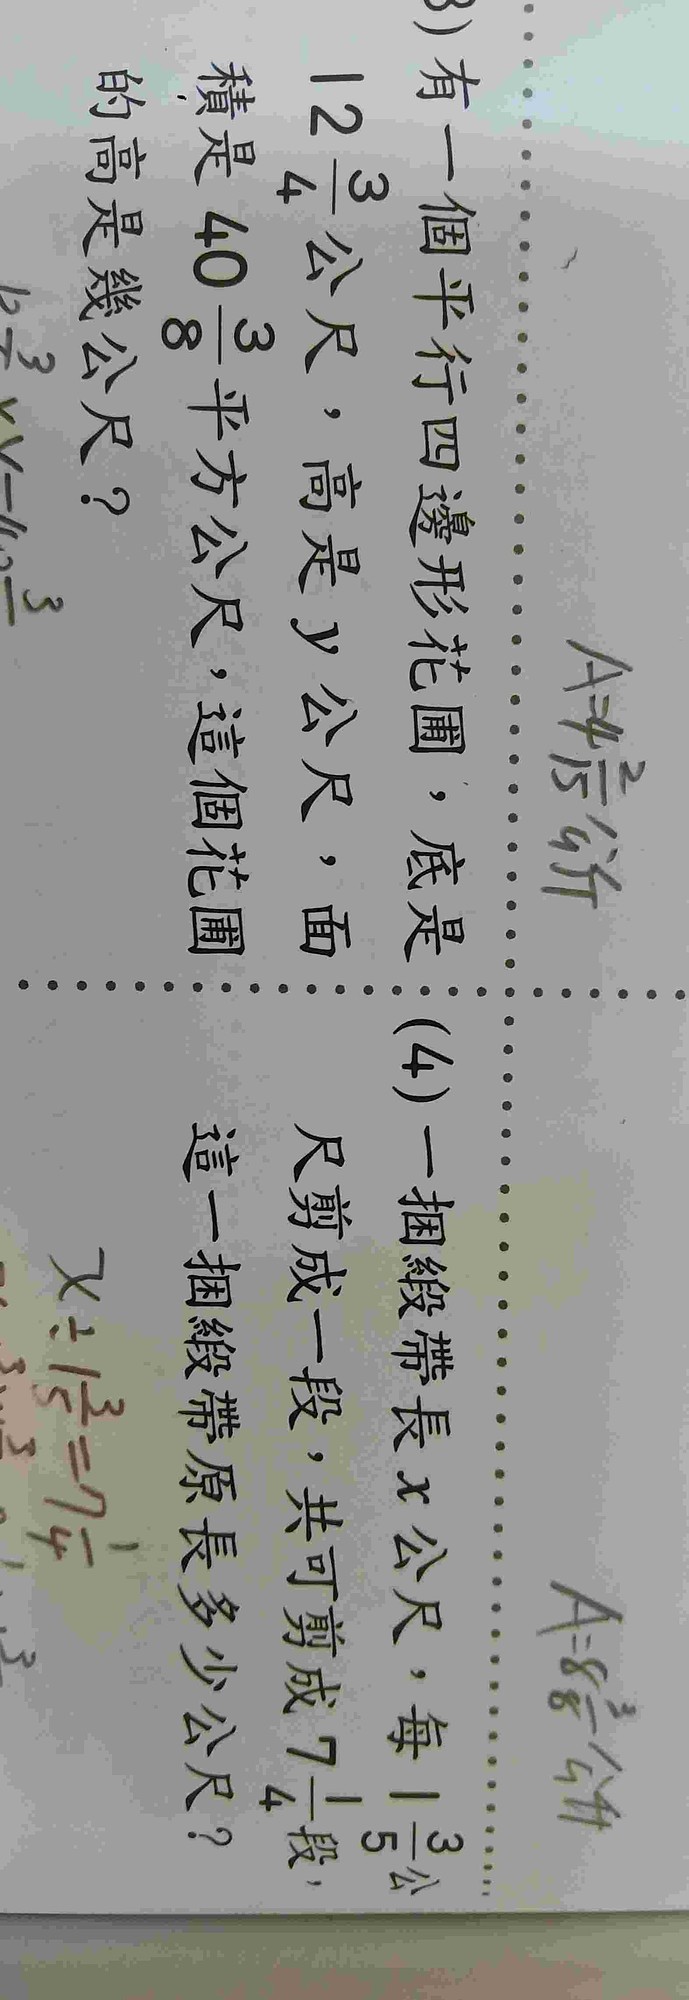 A=4 2/15 公斤
A=8 3/8 公升
3) 有一個平行四邊形花圃，底是
12 3/4 公尺，高是 y 公尺，面
積是 40 3/8 平方公尺，這個花圃
的高是幾公尺？
(4) 一捆緞帶長 x 公尺，每 1 3/5 公
尺剪成一段，共可剪成 7 1/4 段，
這一捆緞帶原長多少公尺？
x÷1 3/5=7 1/4